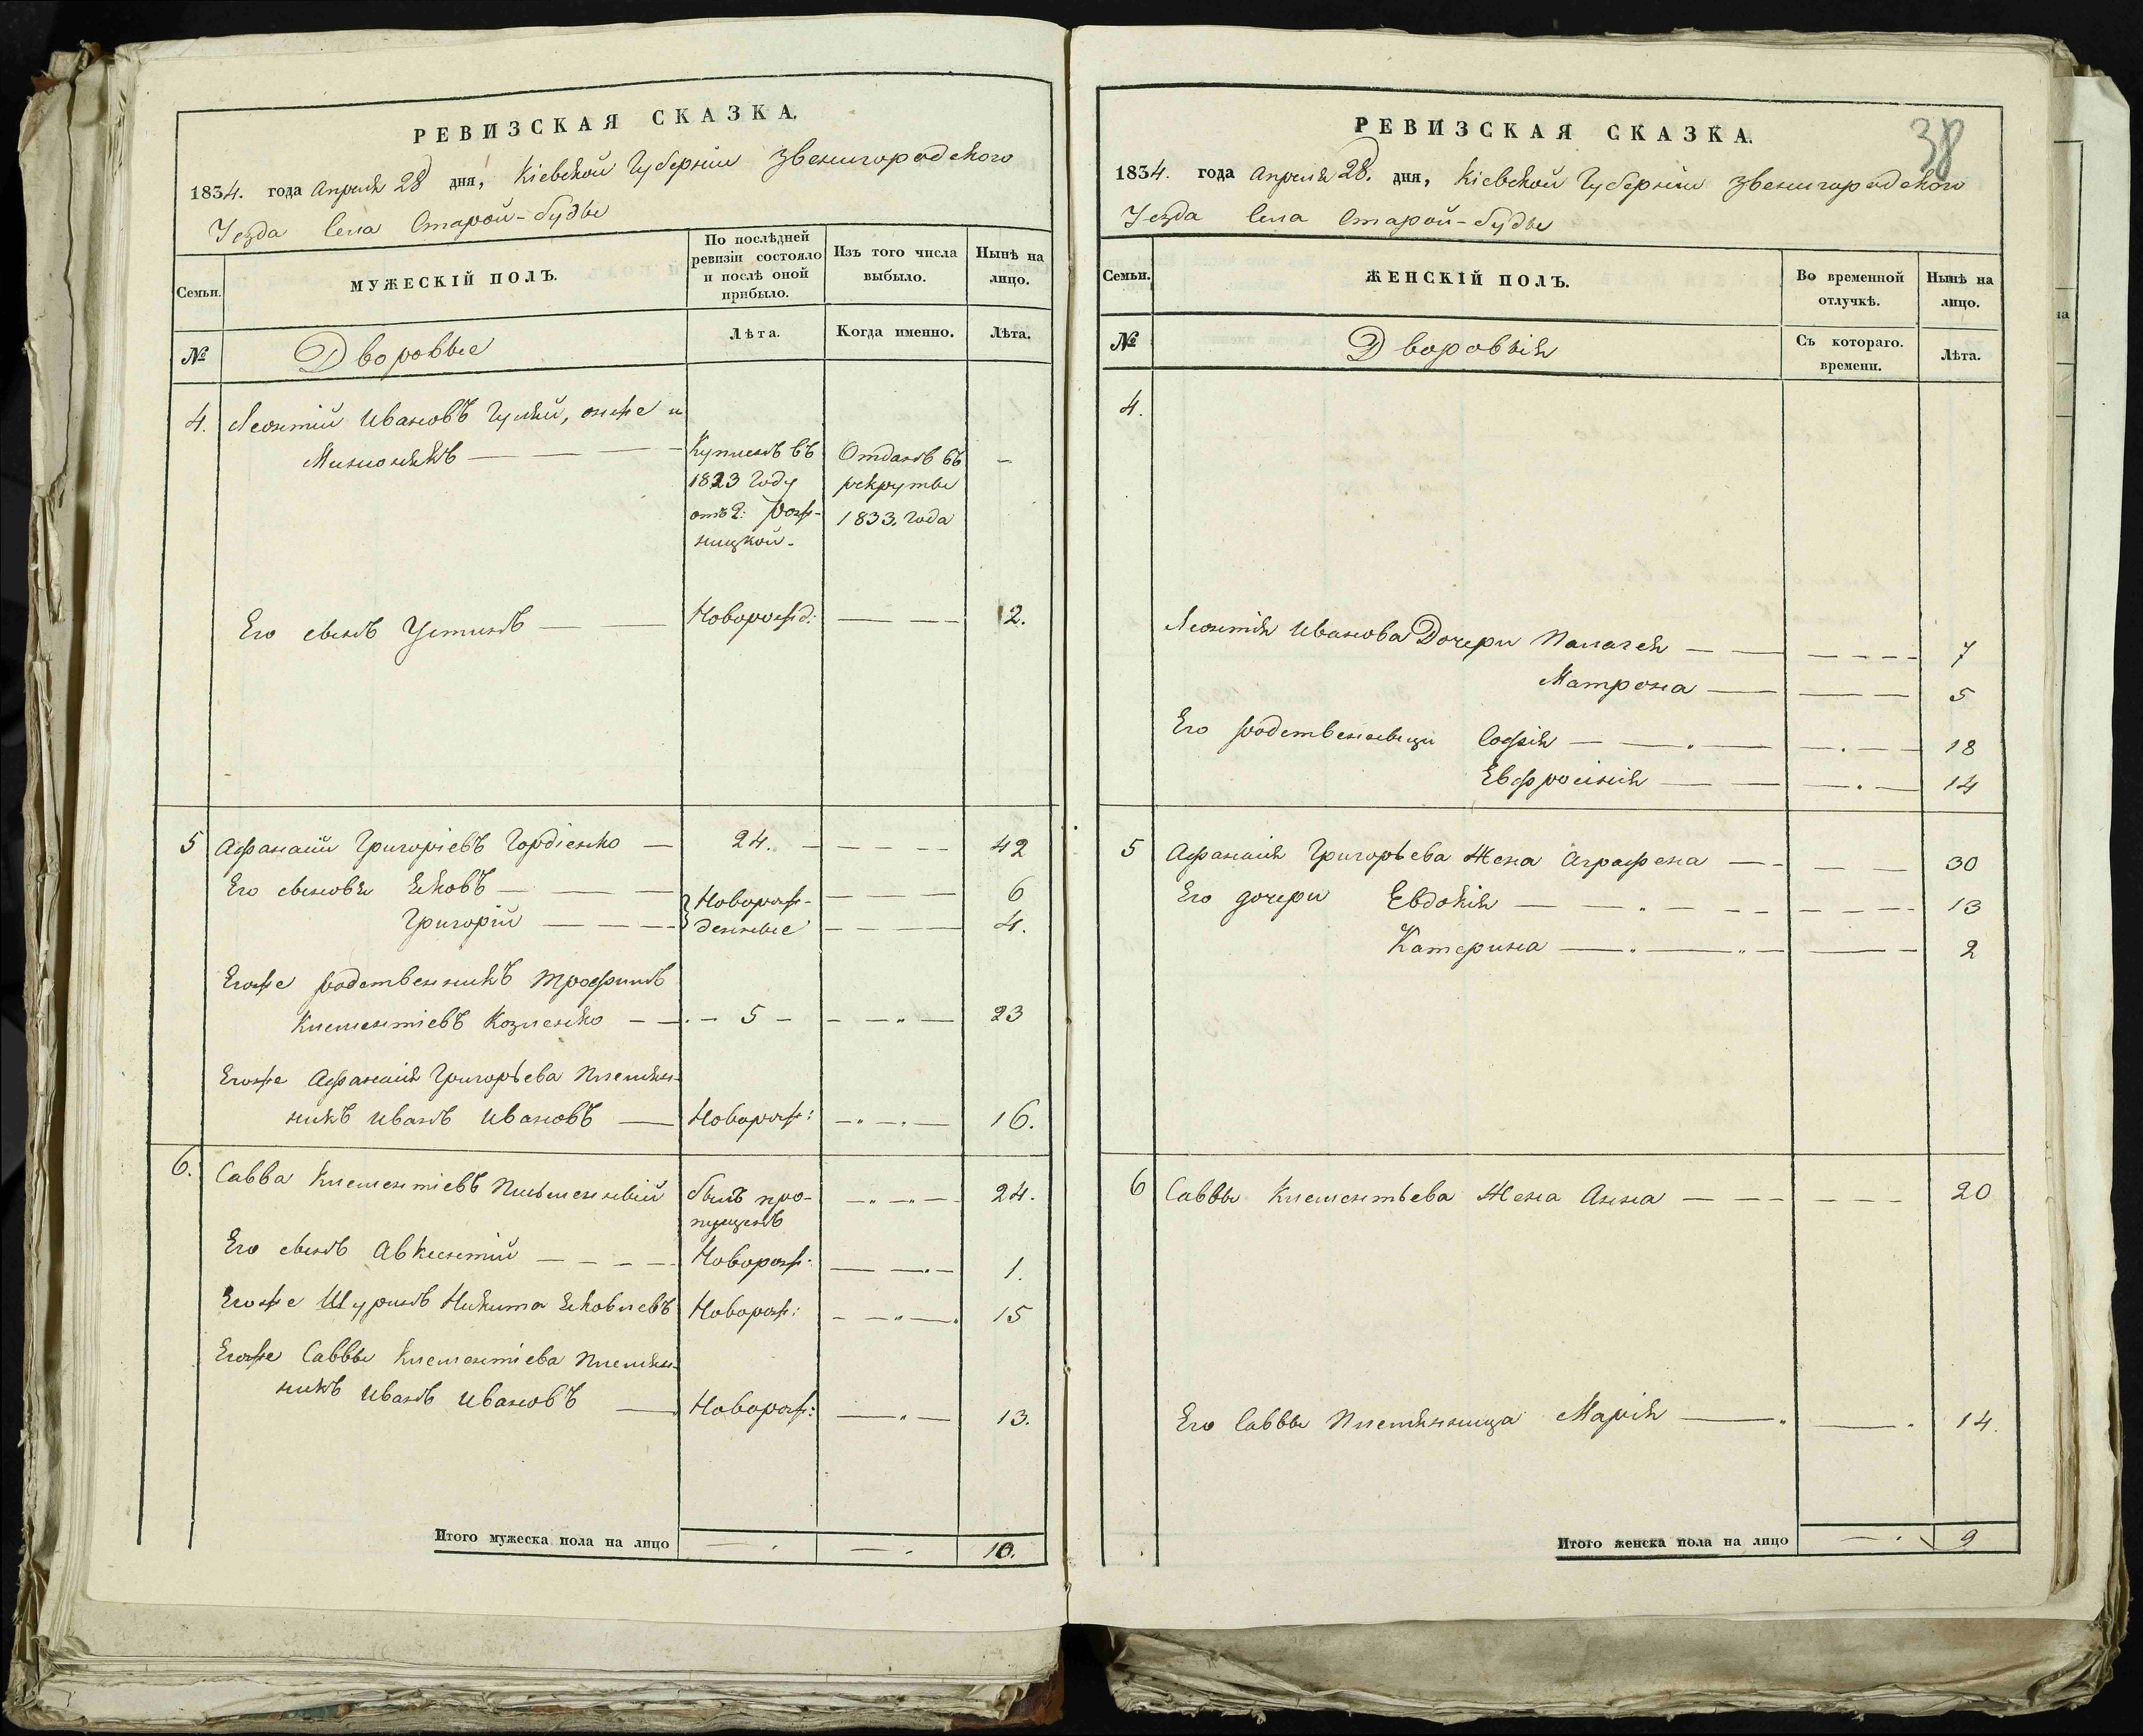 РЕВИЗСКАЯ СКАЗКА.
1834. года Апреля 28 дня, Кіевской Губерніи Звенигородского
Уезда Села Старой-Буды
Семьи.
МУЖЕСКІЙ ПОЛЪ.
По послѣдней ревизіи состояло и послѣ оной прибыло.
Изъ того числа выбыло.
Нынѣ на лицо.
№
Дворовые
Лѣта.
Когда именно.
Лѣта.
4. Леонтій Ивановъ Гуляй, онже и
Миноклякъ — — — Купленъ въ Отданъ въ —
1823 году рекруты
отъ Г:
1833. года
ницкой.
Его сынъ Устинъ — — Новорожд: — — 2.
5 Афанасій Григоріевъ Гордіенко — 24. — — — — 42
Его сыновья Яковъ — — — Новорож- — — 6
Григорій — — — денные — — — — 4.
Егоже родственникъ Трофимъ
Клементіевъ Козленко — — — 5 — — — „ — 23
Егоже Афанасія Григорьева племян-
никъ Иванъ Ивановъ — Новорож: — „ — 16.
6. Савва Клементіевъ Письменный былъ про- — „ — „ — 24.
пущенъ
Его сынъ Авксентій — — — — Новорож: — — 1.
Егоже Шуринъ Никита Яковлевъ Новорож: — — „ — 15
Егоже Саввы Клементіева племян-
никъ Иванъ Ивановъ — Новорож: — „ — 13.
Итого мужеска пола на лицо — . — . 10.
38
РЕВИЗСКАЯ СКАЗКА.
1834. года Апреля 28. дня, Кіевской Губерніи Звенигородского
Уезда Села Старой-Буды
Семьи.
ЖЕНСКІЙ ПОЛЪ.
Во временной отлучкѣ.
Нынѣ на лицо.
№
Дворовыя
Съ котораго. времени.
Лѣта.
4.
Леонтія Иванова Дочери Палагея — — — — — — 7
Матрона — — — 5
Его родственницы Софія — — . — — . — — 18
Евфросинія — — — . — 14
5 Афанасія Григорьева Жена Аграфена — — — — 30
Его дочери Евдокія — — „ — — — — — — — 13
Катерина — „ — „ — — 2
6 Саввы Клементьева Жена Анна — — — — — — 20
Его Саввы Племянница Марія — „ — . 14.
Итого женска пола на лицо — . 9